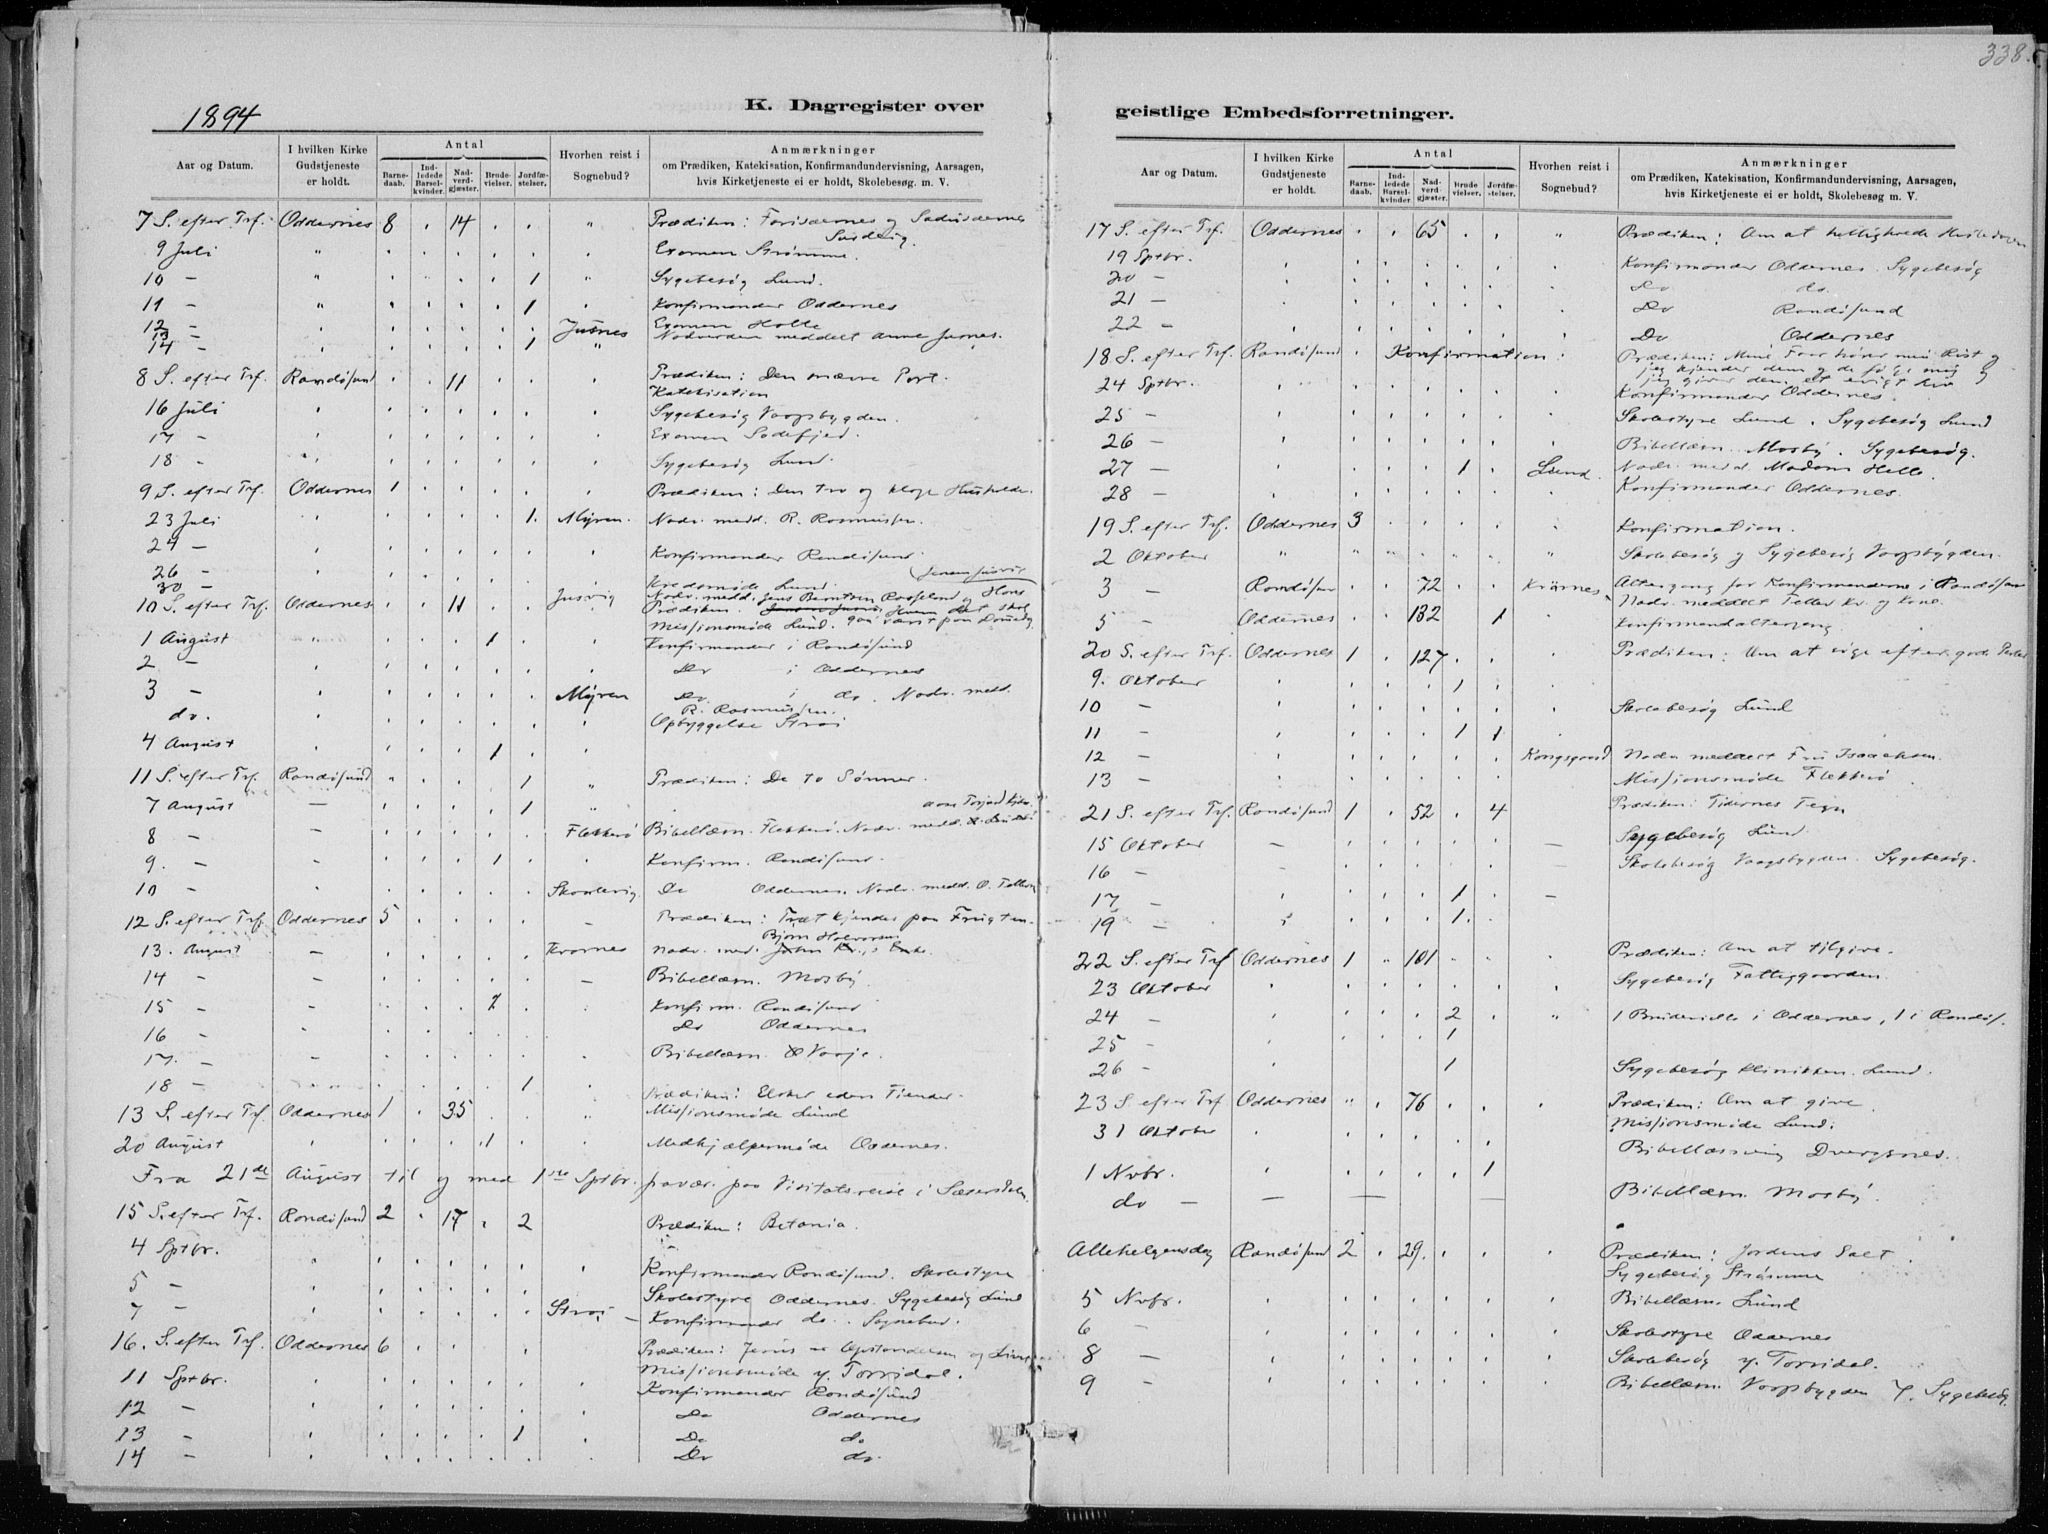 338.
1894
K. Dagregister over
geistlige Embedsforretninger.
Aar og Datum.
I hvilken Kirke Gudstjeneste er holdt.
Antal
Barne-daab.
Ind-ledede Barsel-kvinder.
Nad-verd-gjæster.
Brude-vielser.
Jordfæ-stelser.
Hvorhen reist i Sognebud?
Anmærkninger
om Prædiken, Katekisation, Konfirmandundervisning, Aarsagen,
hvis Kirketjeneste ei er holdt, Skolebesøg m. V.
7 S. efter Trf. Oddernes 8 14 Prædiken: Farisæernes og Saduseernes Surdeig.
9 Juli Examen Strømme.
10 - 1 Sygebesøg Lund.
11 - 1 Konfirmander Oddernes
12 - Examen Holte
13 - Jusnes Nadverden meddelt Anne Jusnes.
14 - 1
8 S. efter Trf. Randøsund 11 Prædiken: Den snevre Port.
Katekisation
16 Juli Sygebesøg Vaagsbygden.
17 - Examen Sodefjed.
18 - Sygebesøg Lund.
9 S. efter Trf. Oddernes 1 Prædiken: Den tro og kloge Husholder.
23 Juli 1. Myren. Nadv. medd. R. Rasmussen.
24 - Konfirmander Randøsund.
26 - Lund.
30 Jusvig Nadv. medd. Jens Berntsen Rosseland og Hans
10 S. efter Trf. Oddernes 11 Prædiken.
Missionsmøde Lund.
1 August 1 Konfirmander i Randøsund
2 - Do i Oddernes
3 - Myren Do. i do. Nadv. medd.
R. Rasmussen.
do. Opbyggelse Strai
4 August 1
11 S. efter Trf. Randøsund 1 Prædiken: De to Sønner.
7 August - 1
8 - Flekkerø Bibellæsn. Flekkerø. Nadv. medd.
9. - 1 Konfirm. Randøsund.
10 - Skaalevig Do Oddernes. Nadv. medd. O.
12 S. efter Trf. Oddernes 5 Prædiken: Træt kjendes paa Frugten.
Bjørn Halvorsen
13. August - Nadv. med.
14 - Bibellæsn. Mosby.
15 - 2 Konfirm. Randøsund
16 - Do Oddernes
17. - Bibellæsn. Vaaje.
18 - 1
13 S. efter Trf. Oddernes 1 35 Prædiken: Elsker eders Fiender.
Missionsmøde Lund
20 August 1 Medhjælpermøde Oddernes.
Fra 21de August til og med 1ste Sptbr. fravær. paa Visitatsreise i Sætersdalen
15 S. efter Trf. Randøsund 2 17 2 Prædiken: Betania.
4 Sptbr.
5 - Konfirmander Randøsund. Skolestyre
7 - Skolestyre Oddernes. Sygebesøg Lund
Strai - Konfirmander do. Sognebud.
16. S. efter Trf. Oddernes 6 Prædiken: Jesus er Opstandelsen og Livet
Missionsmøde y. Torridal.
11 Sptbr. Konfirmander Randøsund
12 - Do Oddernes
13 - 1 Do do
14 - Do do.
Aar og Datum.
I hvilken Kirke Gudstjeneste er holdt.
Antal
Barne-daab.
Ind-ledede Barsel-kvinder.
Nad-verd-gjæster.
Brude-vielser.
Jordfæ-stelser.
Hvorhen reist i Sognebud?
Anmærkninger
om Prædiken, Katekisation, Konfirmandundervisning, Aarsagen,
hvis Kirketjeneste ei er holdt, Skolebesøg m. V.
17 S. efter Trf. Oddernes 65 Prædiken: Om at helligholde Hviledagen
19 Sptbr. Konfirmander Oddernes. Sygebesøg
20 - Do do.
21 - Do Randøsund
22 - Do Oddernes
18 S. efter Trf. Randøsund Konfirmation: Prædiken: Mine Faar hører min Røst og
jeg kjender dem og de følge mig og
24 Sptbr. jeg giver dem et evigt liv
Konfirmander Oddernes.
25 - Skolestyre Lund. Sygebesøg Lund
26 - Bibellæsn. Mosby. Sygebesøg.
27 - 1 Lund. Nadv. medd. Madam Helle
28 - Konfirmander Oddernes.
19 S. efter Trf. Oddernes 3 Konfirmation.
2 Oktober Skolebesøg og Sygebesøg Vaagsbygden.
3 - Randøsun 72 Altergang for Konfirmanderne i Randøsun
Nadv. meddelt Tellef Kr. og Kone.
5 - Oddernes 132 1 Konfirmandaltergang.
20 S. efter Trf. Oddernes 1 127 Prædiken: Om at søge efter gode Perler
9. Oktober 1
10 - Skolebesøg Lund
11 - 1 1
12 - Kongsgaard Nadv. meddelt Fru Isaachsen.
13 - Missionsmøde Flekkerø
21 S. efter Trf. Randøsund 1 52 4 Prædiken: Tidernes Tegn
15 Oktober - Sygebesøg Lund
16 - Skolebesøg Vaagsbygden. Sygebesøg.
17 - 1 -
19 - 1.
22 S. efter Trf Oddernes 1 101 Prædiken: Om at tilgive.
23 Oktober Sygebesøg Fattiggaarden.
24 - 2 1 Brudevielse i Oddernes, 1 i Randøs.
25 - 1
26 - 1 Sygebesøg Klinikken. Lund.
23 S. efter Trf Oddernes 76 Prædiken: Om at give.
31 Oktober Missionsmøde Lund.
1 Nvbr. 1 Bibellæsning Dvergsnes.
do - Bibellæsn. Mosby.
Allehelgensdag Randøsund 2 29. Prædiken: Jordens Salt.
Sygebesøg Strømme
5 Nvbr. Bibellæsn. Lund
6 - Skolestyre Oddernes
8 - Skolebesøg y. Torridal.
9 - Bibellæsn. Vaagsbygden. Sygebesøg.